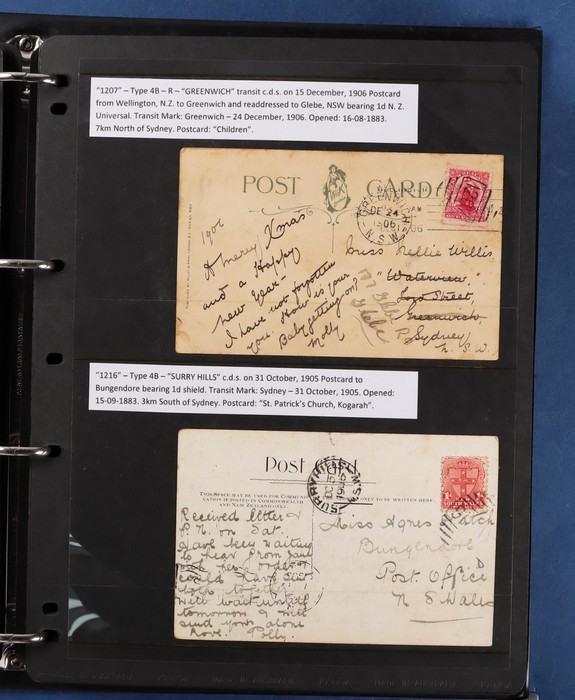 "1207" – Type 4B – R – "GREENWICH" transit c.d.s. on 15 December, 1906 Postcard
from Wellington, N.Z. to Greenwich and readdressed to Glebe, NSW bearing 1d N. Z.
Universal. Transit Mark: Greenwich – 24 December, 1906. Opened: 16-08-1883.
7km North of Sydney. Postcard: "Children".
POST CARD
GREENWICH
DE 24
06
N.S.W
1906
A merry Xmas
and a Happy
New Year.
I have not forgotten
you. How is your
Baby getting on?
Molly
Miss Nellie Willis
"Waterview,"
Street,
Greenwich,
Glebe
Sydney
N. S. W.
"1216" – Type 4B – "SURRY HILLS" c.d.s. on 31 October, 1905 Postcard to
Bungendore bearing 1d shield. Transit Mark: Sydney – 31 October, 1905. Opened:
15-09-1883. 3km South of Sydney. Postcard: "St. Patrick's Church, Kogarah".
Post
SURRY HILLS N.S.W
THIS SPACE MAY BE USED FOR COMMUNI-
CATION IF POSTED IN COMMONWEALTH
AND NEW ZEALAND ONLY.
ONLY TO BE WRITTEN HERE
Received letter &
P. N. on Sat.
Have been waiting
to hear from
her order
could have
will wait until
tomorrow & will
send yours alone
Love. Polly.
Miss Agnes
Bungendore
Post Office
N S Wales